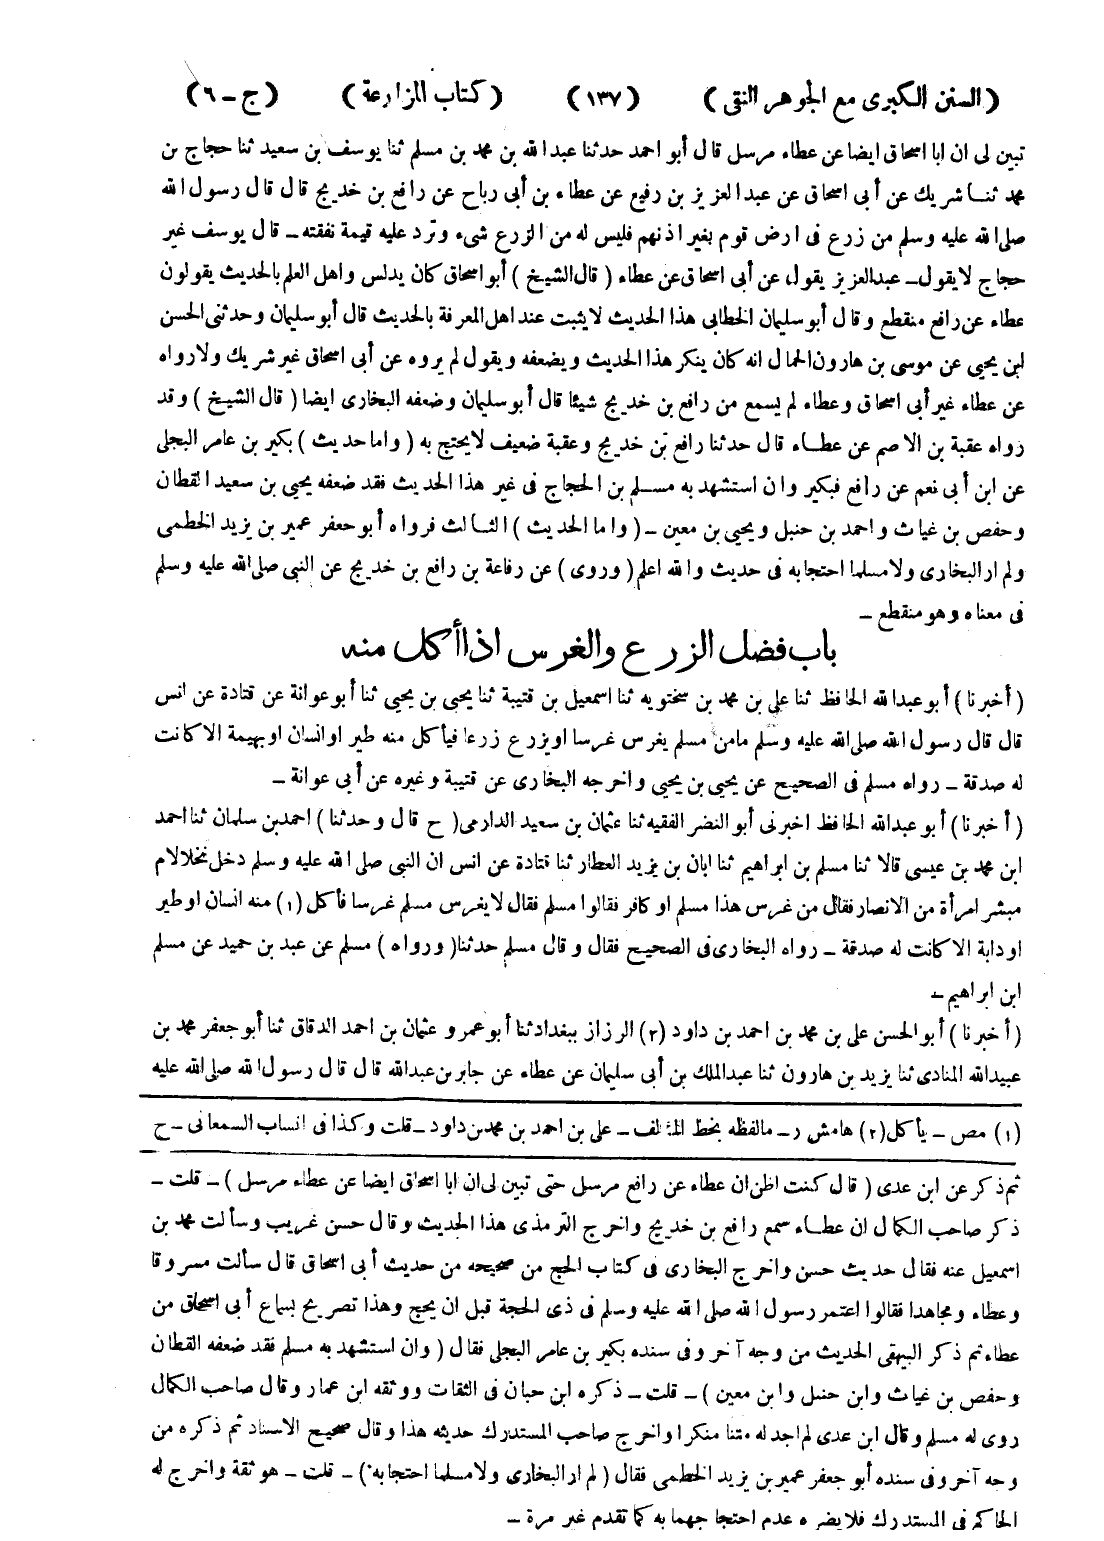 (السنن الكبرى مع الجوهر النقى) (١٣٧) (كتاب المزارعة) (ج - ٦)
تبين لى ان ابا اسحاق ايضا عن عطاء مرسل قال أبو احمد حدثنا عبد الله بن محمد بن مسلم ثنا يوسف بن سعيد ثنا حجاج بن
محمد ثنا شريك عن أبى اسحاق عن عبد العزيز بن رفيع عن عطاء بن أبى رباح عن رافع بن خديج قال قال رسول الله
صلى الله عليه وسلم من زرع فى ارض قوم بغير اذنهم فليس له من الزرع شىء وترد عليه قيمة نفقته - قال يوسف غير
حجاج لا يقول - عبد العزيز يقول عن أبى اسحاق عن عطاء (قال الشيخ) أبو اسحاق كان يدلس واهل العلم بالحديث يقولون
عطاء عن رافع منقطع وقال أبو سليمان الخطابى هذا الحديث لا يثبت عند اهل المعرفة بالحديث قال أبو سليمان وحدثنى الحسن
ابن يحيى عن موسى بن هارون الحمال انه كان ينكر هذا الحديث ويضعفه ويقول لم يروه عن أبى اسحاق غير شريك ولا رواه
عن عطاء غير أبى اسحاق وعطاء لم يسمع من رافع بن خديج شيئا قال أبو سليمان وضعفه البخارى ايضا (قال الشيخ) وقد
رواه عقبة بن الاصم عن عطاء قال حدثنا رافع بن خديج وعقبة ضعيف لا يحتج به (واما حديث) بكير بن عامر البجلى
عن ابن أبى نعم عن رافع فبكير وان استشهد به مسلم بن الحجاج فى غير هذا الحديث فقد ضعفه يحيى بن سعيد القطان
وحفص بن غياث واحمد بن حنبل ويحيى بن معين - (واما الحديث) الثالث فرواه أبو جعفر عمير بن يزيد الخطمى
ولم ار البخارى ولا مسلما احتجا به فى حديث والله اعلم (وروى) عن رفاعة بن رافع بن خديج عن النبى صلى الله عليه وسلم
فى معناه وهو منقطع -
باب فضل الزرع والغرس اذا أكل منه
(أخبرنا) أبو عبد الله الحافظ ثنا على بن محمد بن سختويه ثنا اسمعيل بن قتيبة ثنا يحيى بن يحيى ثنا أبو عوانة عن قتادة عن انس
قال قال رسول الله صلى الله عليه وسلم ما من مسلم يغرس غرسا او يزرع زرعا فيأكل منه طير او انسان او بهيمة الا كانت
له صدقة - رواه مسلم فى الصحيح عن يحيى بن يحيى واخرجه البخارى عن قتيبة وغيره عن أبى عوانة -
(أخبرنا) أبو عبد الله الحافظ اخبرنى أبو النضر الفقيه ثنا عثمان بن سعيد الدارمى (ح قال وحدثنا) احمد بن سلمان ثنا احمد
ابن محمد بن عيسى قالا ثنا مسلم بن ابراهيم ثنا ابان بن يزيد العطار ثنا قتادة عن انس ان النبى صلى الله عليه وسلم دخل نخلا لام
مبشر امرأة من الانصار فقال من غرس هذا مسلم او كافر فقالوا مسلم فقال لا يغرس مسلم غرسا فأكل (١) منه انسان او طير
او دابة الا كانت له صدقة - رواه البخارى فى الصحيح فقال وقال مسلم حدثنا (ورواه) مسلم عن عبد بن حميد عن مسلم
ابن ابراهيم -
(أخبرنا) أبو الحسن على بن محمد بن احمد بن داود (٢) الرزاز ببغداد ثنا أبو عمرو عثمان بن احمد الدقاق ثنا أبو جعفر محمد بن
عبيد الله المنادى ثنا يزيد بن هارون ثنا عبد الملك بن أبى سليمان عن عطاء عن جابر بن عبد الله قال قال رسول الله صلى الله عليه
(١) مص - يأكل (٢) هامش ر - ما لفظه بخط المؤلف - على بن احمد بن محمد بن داود - قلت وكذا فى انساب السمعانى - ح
ثم ذكر عن ابن عدى (قال كنت اظن ان عطاء عن رافع مرسل حتى تبين لى ان ابا اسحاق ايضا عن عطاء مرسل) - قلت -
ذكر صاحب الكمال ان عطاء سمع رافع بن خديج واخرج الترمذى هذا الحديث وقال حسن غريب وسألت محمد بن
اسمعيل عنه فقال حديث حسن واخرج البخارى فى كتاب الحج من صحيحه من حديث أبى اسحاق قال سألت مسروقا
وعطاء ومجاهدا فقالوا اعتمر رسول الله صلى الله عليه وسلم فى ذى الحجة قبل ان يحج وهذا تصريح بسماع أبى اسحاق من
عطاء ثم ذكر البيهقى الحديث من وجه آخر وفى سنده بكير بن عامر البجلى فقال (وان استشهد به مسلم فقد ضعفه القطان
وحفص بن غياث وابن حنبل وابن معين) - قلت - ذكره ابن حبان فى الثقات ووثقه ابن عمار وقال صاحب الكمال
روى له مسلم وقال ابن عدى لم اجد له متنا منكرا واخرج صاحب المستدرك حديثه هذا وقال صحيح الاسناد ثم ذكره من
وجه آخر وفى سنده أبو جعفر عمير بن يزيد الخطمى فقال (لم ار البخارى ولا مسلما احتجا به) - قلت - هو ثقة واخرج له
الحاكم فى المستدرك فلا يضره عدم احتجاجهما به كما تقدم غير مرة -